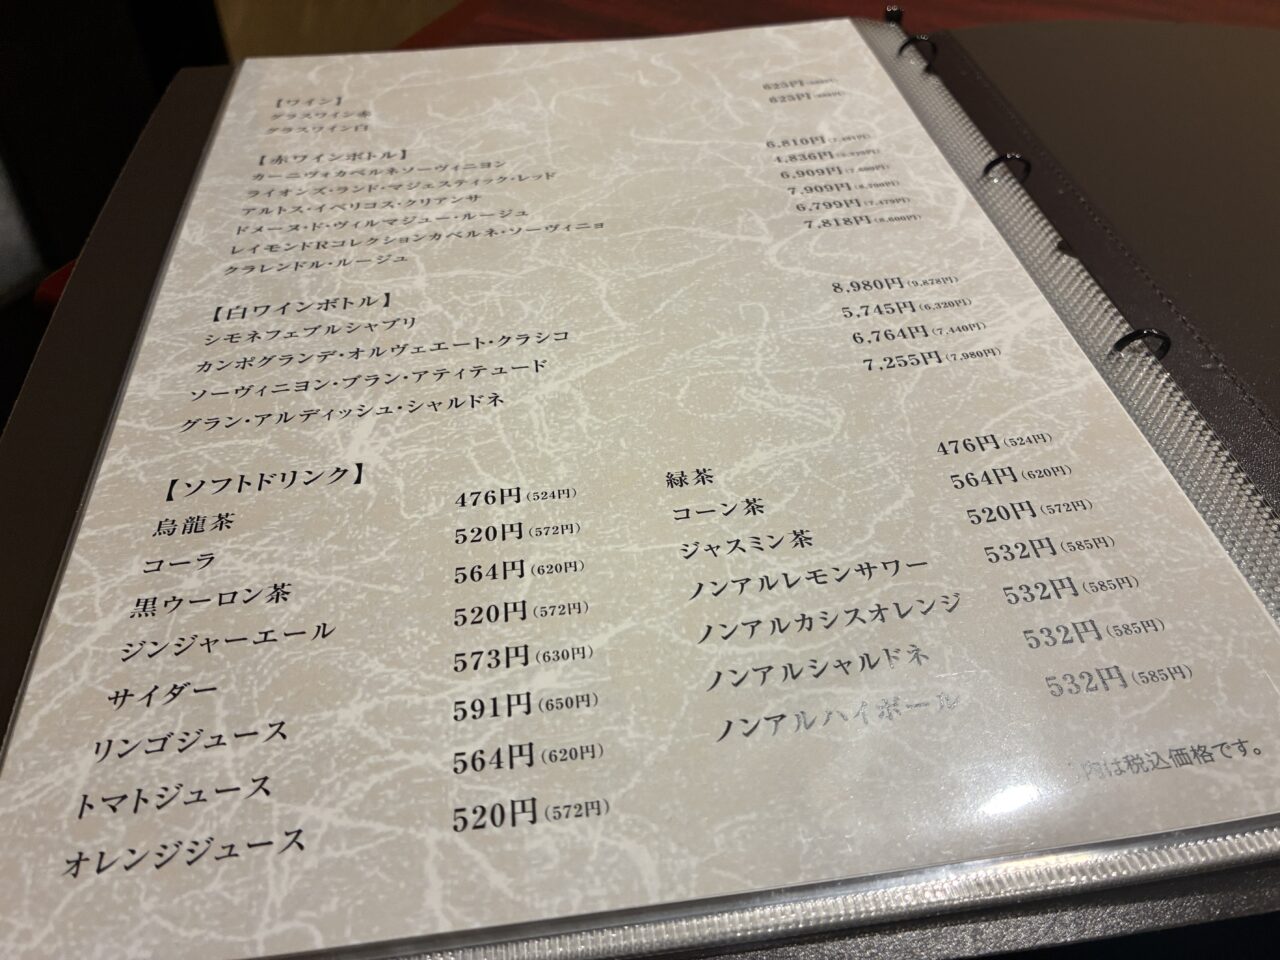 【ワイン】
グラスワイン赤 623円
グラスワイン白 623円
【赤ワインボトル】
カーニヴォカベルネソーヴィニヨン 6,810円
ライオンズ・ランド・マジェスティック・レッド 4,836円
アルトス・イベリコス・クリアンサ 6,909円
ドメーヌ・ド・ヴィルマジュー・ルージュ 7,909円(8,700円)
レイモンドRコレクションカベルネ・ソーヴィニョ 6,799円(7,479円)
クラレンドル・ルージュ 7,818円(8,600円)
【白ワインボトル】
シモネフェブルシャブリ 8,980円(9,878円)
カンポグランデ・オルヴェエート・クラシコ 5,745円(6,320円)
ソーヴィニヨン・ブラン・アティテュード 6,764円(7,440円)
グラン・アルディッシュ・シャルドネ 7,255円(7,980円)
【ソフトドリンク】
烏龍茶 476円(524円)
コーラ 520円(572円)
黒ウーロン茶 564円(620円)
ジンジャーエール 520円(572円)
サイダー 573円(630円)
リンゴジュース 591円(650円)
トマトジュース 564円(620円)
オレンジジュース 520円(572円)
緑茶 476円(524円)
コーン茶 564円(620円)
ジャスミン茶 520円(572円)
ノンアルレモンサワー 532円(585円)
ノンアルカシスオレンジ 532円(585円)
ノンアルシャルドネ 532円(585円)
ノンアルハイボール 532円(585円)
内は税込価格です。